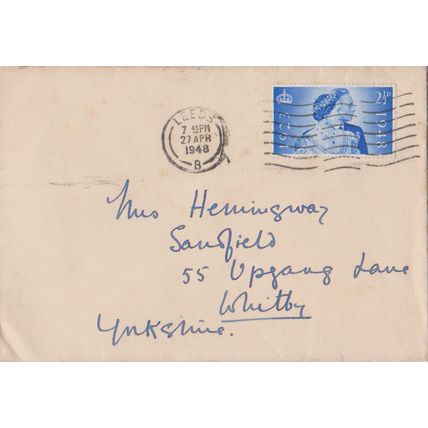 LEEDS
7 45 PM
27 APR
1948
B
1923
2½D
1948
Mrs Hemingway
Sandfield
55 Upgang Lane
Whitby
Yorkshire.